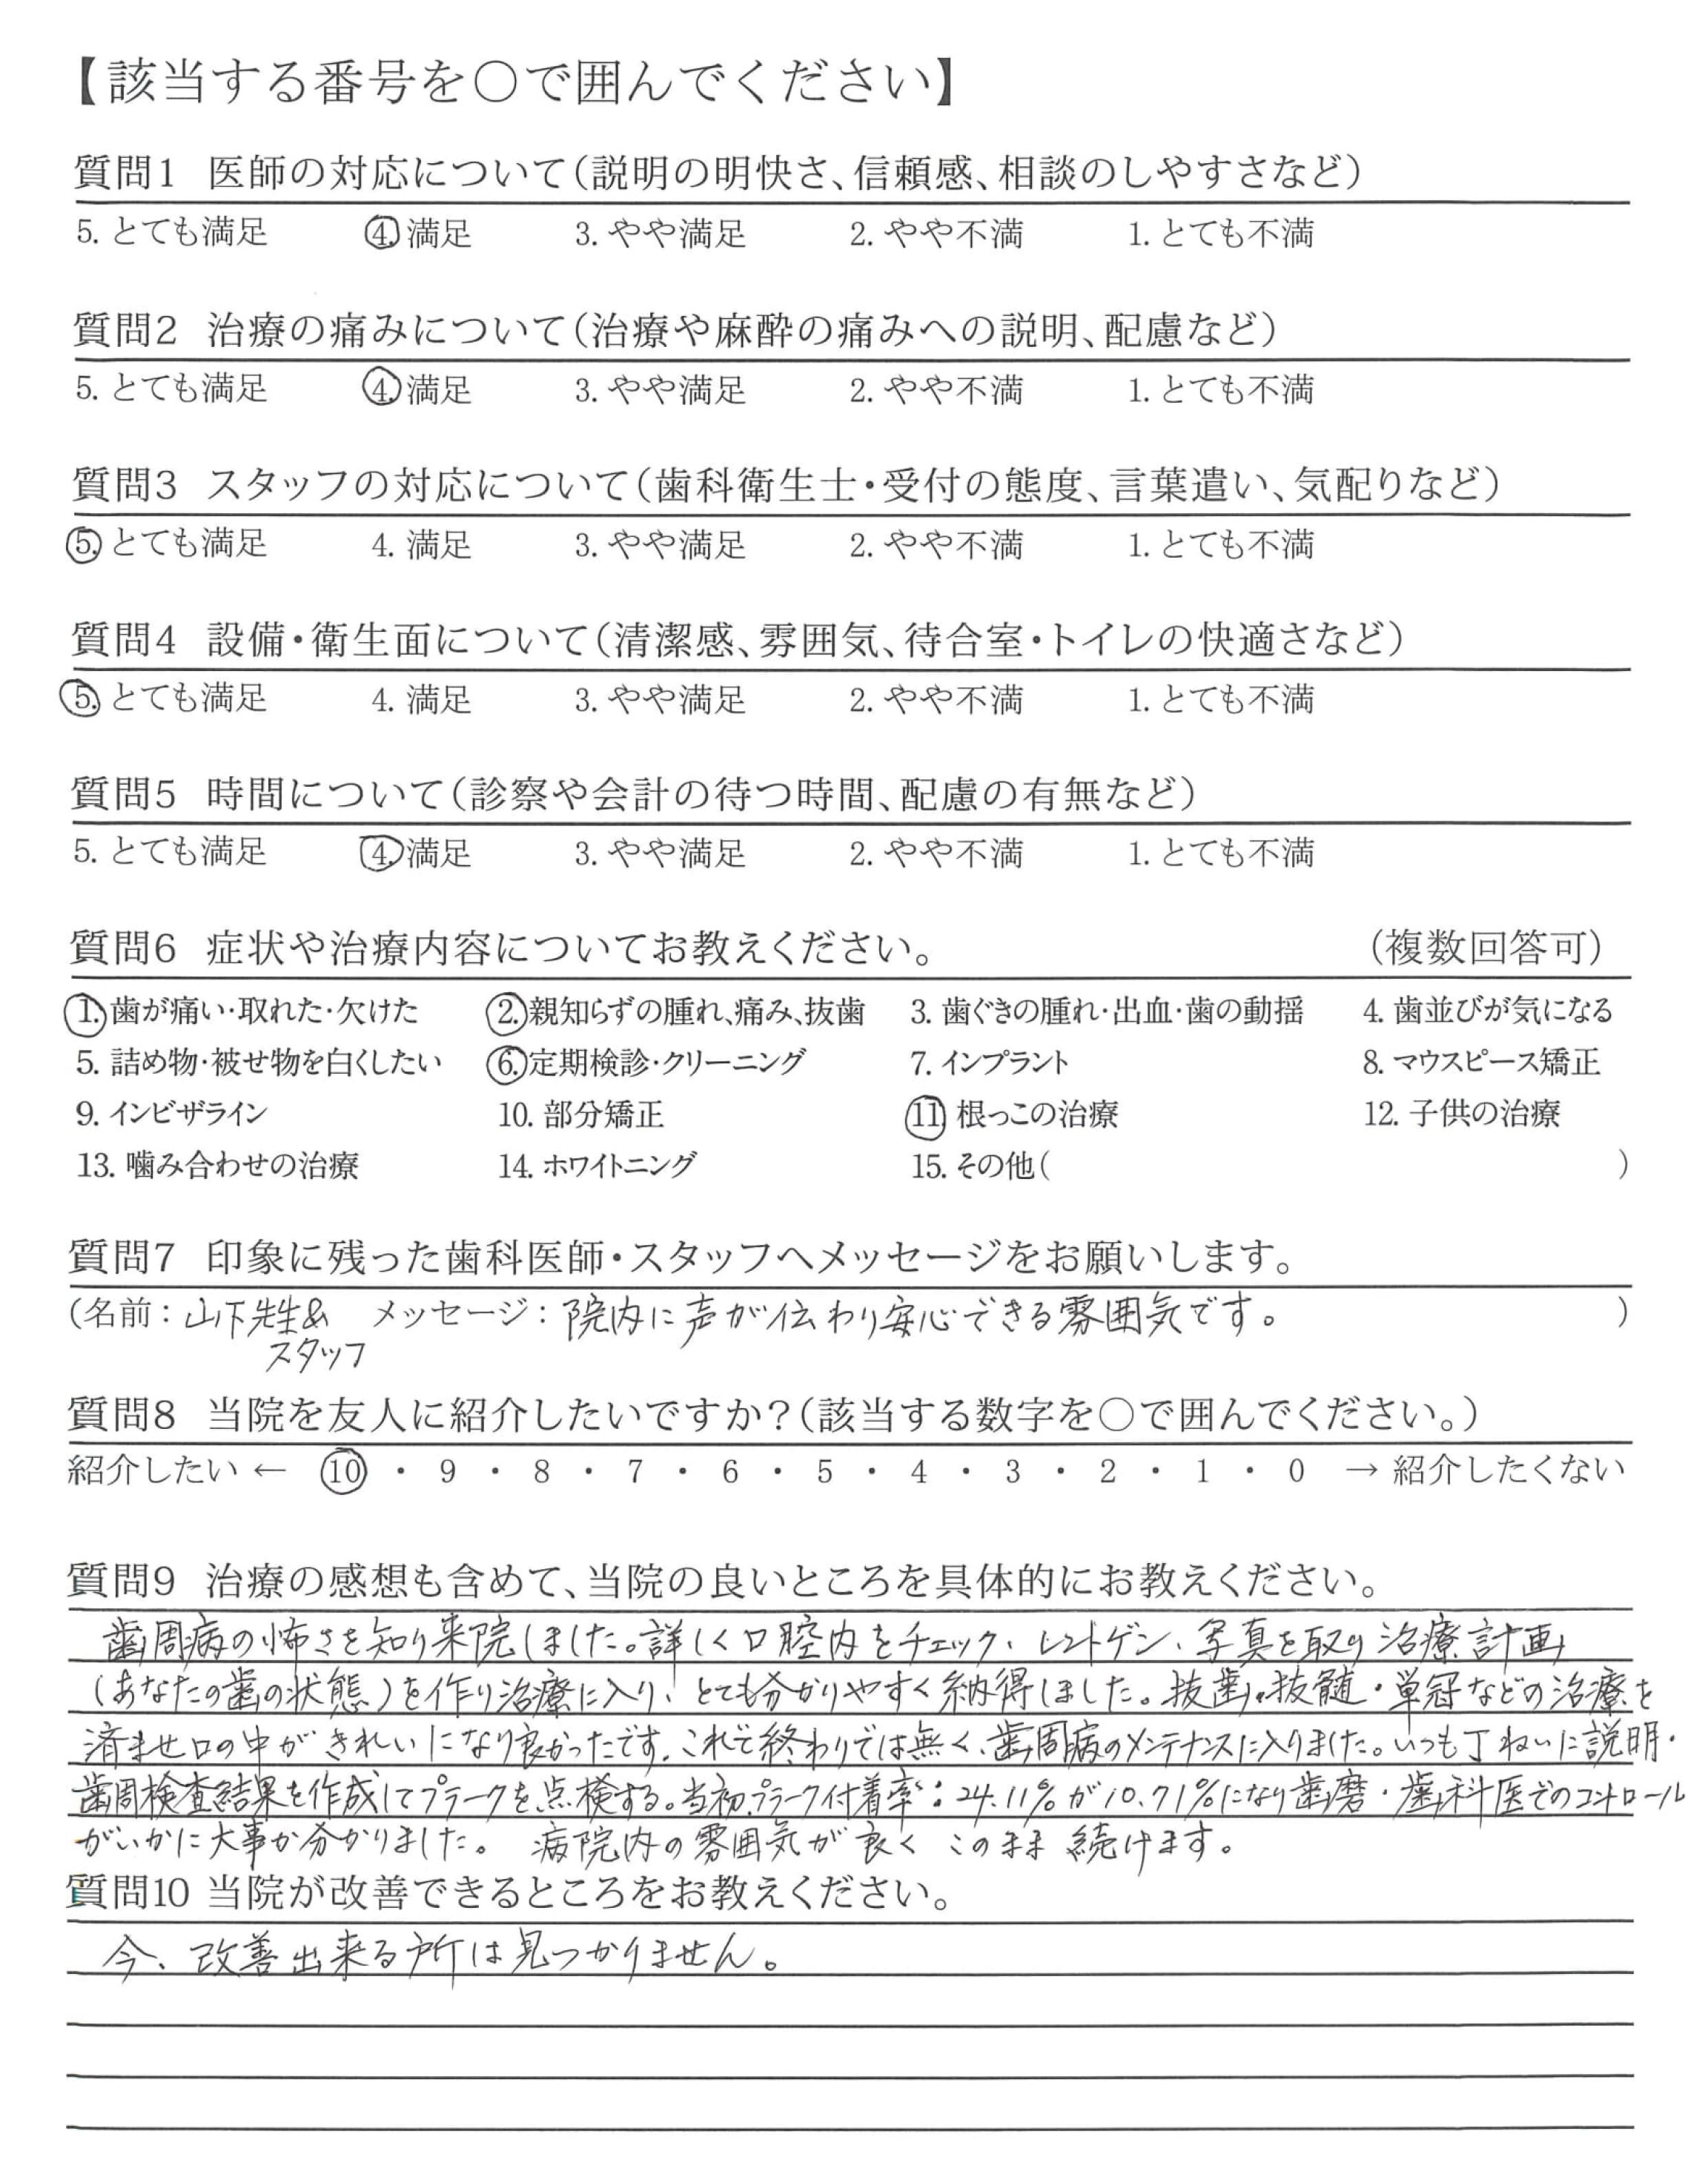 【該当する番号を○で囲んでください】
質問1 医師の対応について(説明の明快さ、信頼感、相談のしやすさなど)
5. とても満足 4. 満足 3. やや満足 2. やや不満 1. とても不満
質問2 治療の痛みについて(治療や麻酔の痛みへの説明、配慮など)
5. とても満足 4. 満足 3. やや満足 2. やや不満 1. とても不満
質問3 スタッフの対応について(歯科衛生士・受付の態度、言葉遣い、気配りなど)
5. とても満足 4. 満足 3. やや満足 2. やや不満 1. とても不満
質問4 設備・衛生面について(清潔感、雰囲気、待合室・トイレの快適さなど)
5. とても満足 4. 満足 3. やや満足 2. やや不満 1. とても不満
質問5 時間について(診察や会計の待つ時間、配慮の有無など)
5. とても満足 4. 満足 3. やや満足 2. やや不満 1. とても不満
質問6 症状や治療内容についてお教えください。 (複数回答可)
1. 歯が痛い・取れた・欠けた 2. 親知らずの腫れ、痛み、抜歯 3. 歯ぐきの腫れ・出血・歯の動揺 4. 歯並びが気になる
5. 詰め物・被せ物を白くしたい 6. 定期検診・クリーニング 7. インプラント 8. マウスピース矯正
9. インビザライン 10. 部分矯正 11. 根っこの治療 12. 子供の治療
13. 噛み合わせの治療 14. ホワイトニング 15. その他( )
質問7 印象に残った歯科医師・スタッフへメッセージをお願いします。
(名前:山下先生& メッセージ:院内に声が伝わり安心できる雰囲気です。 )
スタッフ
質問8 当院を友人に紹介したいですか?(該当する数字を○で囲んでください。)
紹介したい ← 10 ・ 9 ・ 8 ・ 7 ・ 6 ・ 5 ・ 4 ・ 3 ・ 2 ・ 1 ・ 0 → 紹介したくない
質問9 治療の感想も含めて、当院の良いところを具体的にお教えください。
歯周病の怖さを知り来院しました。詳しく口腔内をチェック、レントゲン、写真を取り治療計画
(あなたの歯の状態)を作り治療に入り、とても分かりやすく納得しました。抜歯・抜髄・単冠などの治療を
済ませ口の中がきれいになり良かったです。これで終わりでは無く、歯周病のメンテナンスに入りました。いつも丁ねいに説明・
歯周検査結果を作成してプラークを点検する。当初プラーク付着率:24.11%が10.71%になり歯磨・歯科医でのコントロール
がいかに大事か分かりました。 病院内の雰囲気が良く このまま続けます。
質問10 当院が改善できるところをお教えください。
今、改善出来る所は見つかりません。